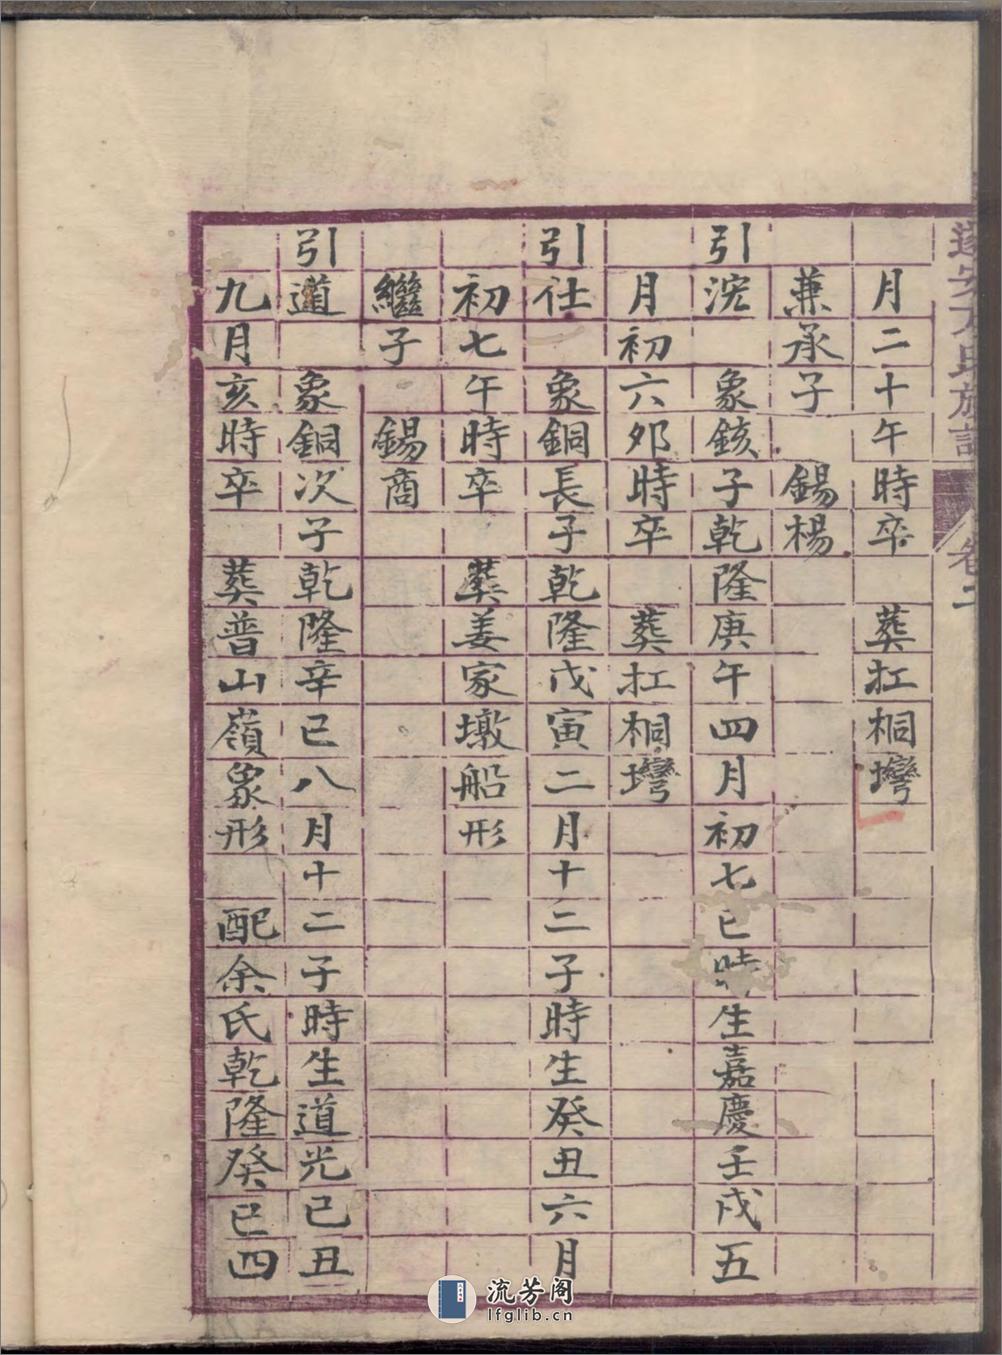 月二十午時卒 葬扛桐壪
兼承子 錫楊
引浣 象鋟子乾隆庚午四月初七巳時生嘉慶壬戌五
月初六夘時卒 葬扛桐壪
引仕 象銅長子乾隆戊寅二月十二子時生癸丑六月
初七午時卒 葬姜家墩船形
繼子 錫商
引道 象銅次子乾隆辛巳八月十二子時生道光己丑
九月亥時卒 葬普山嶺象形 配余氏乾隆癸巳四
氏族
卷二
流芳阁
lfglib.cn